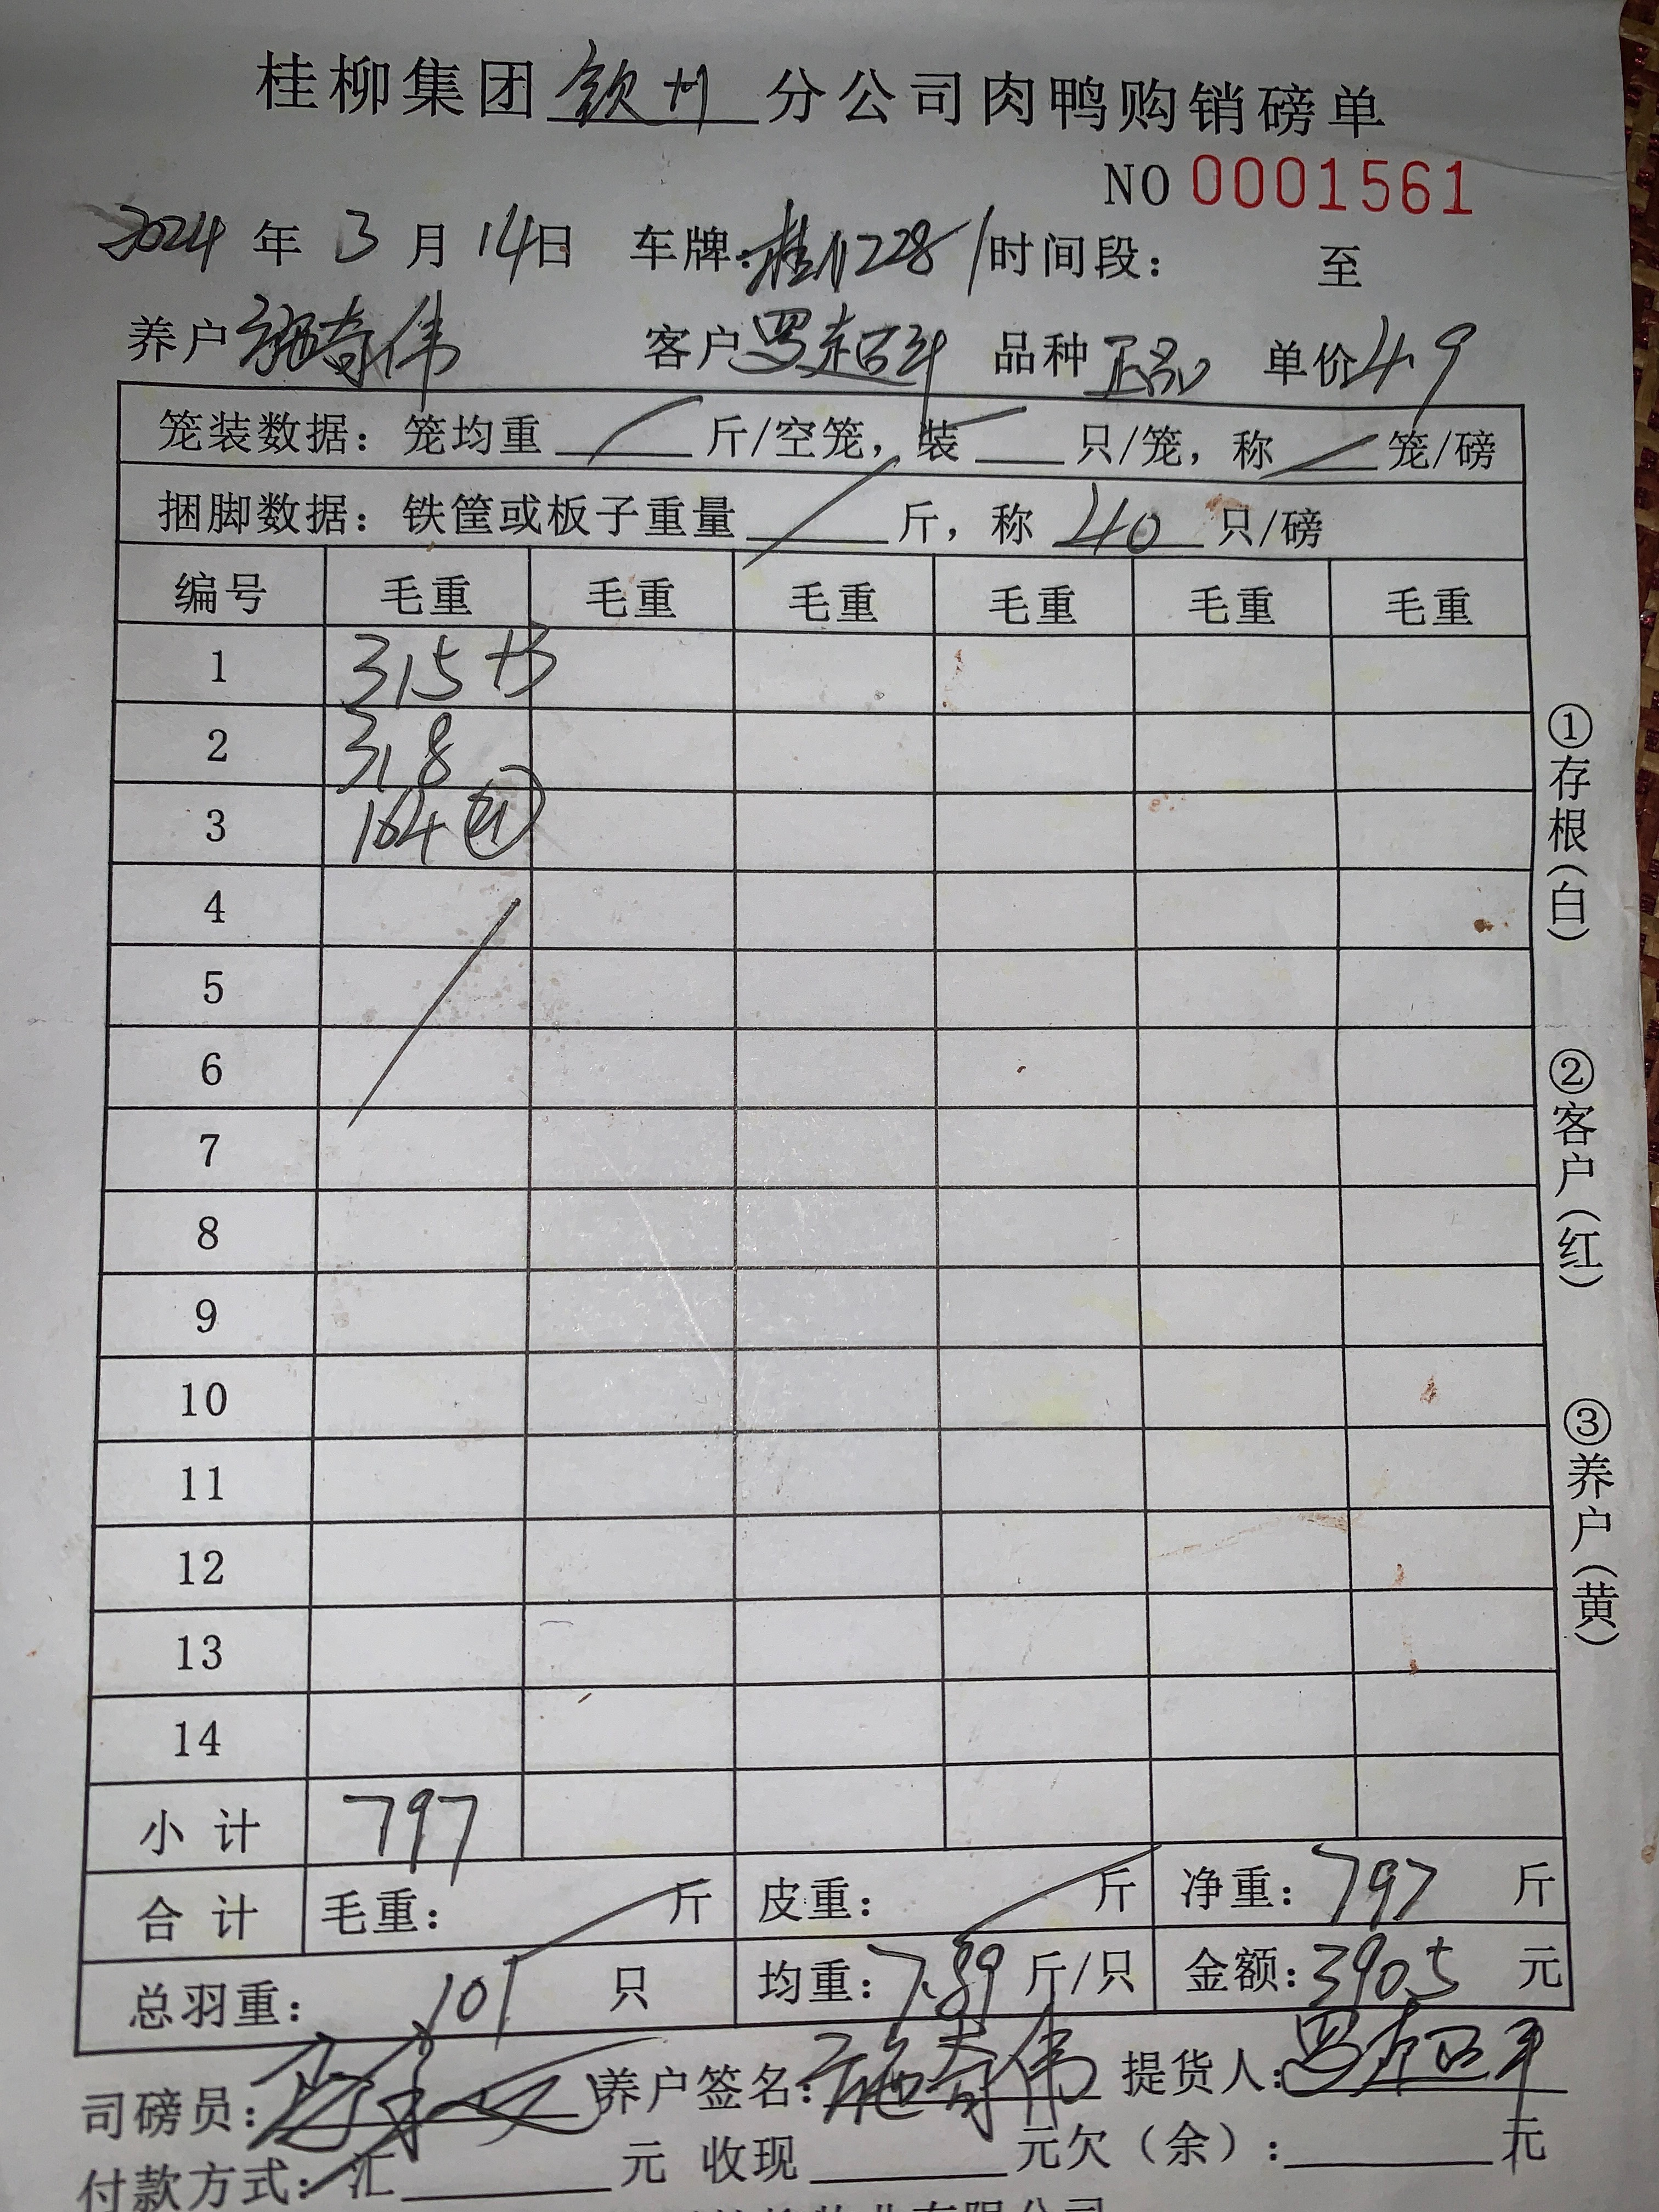 桂柳集团 钦州 分公司肉鸭购销磅单
NO 0001561
2024 年 3 月 14 日 车牌: 桂 2281 时间段: 至
养户 施奇伟 客户 罗超 品种 正品 单价 4.9
笼装数据: 笼均重 斤/空笼, 装 只/笼, 称 笼/磅
捆脚数据: 铁筐或板子重量 斤, 称 40 只/磅
编号 毛重 毛重 毛重 毛重 毛重 毛重
1 315 +3
2 318
3 164 (21)
4
5
6
7
8
9
10
11
12
13
14
小计 797
合计 毛重: 斤 皮重: 斤 净重: 797 斤
总羽重: 101 只 均重: 7.89 斤/只 金额: 3905 元
司磅员: 养户签名: 施奇伟 提货人: 罗超
付款方式: 汇 元 收现 元欠(余): 元
①存根(白)
②客户(红)
③养户(黄)